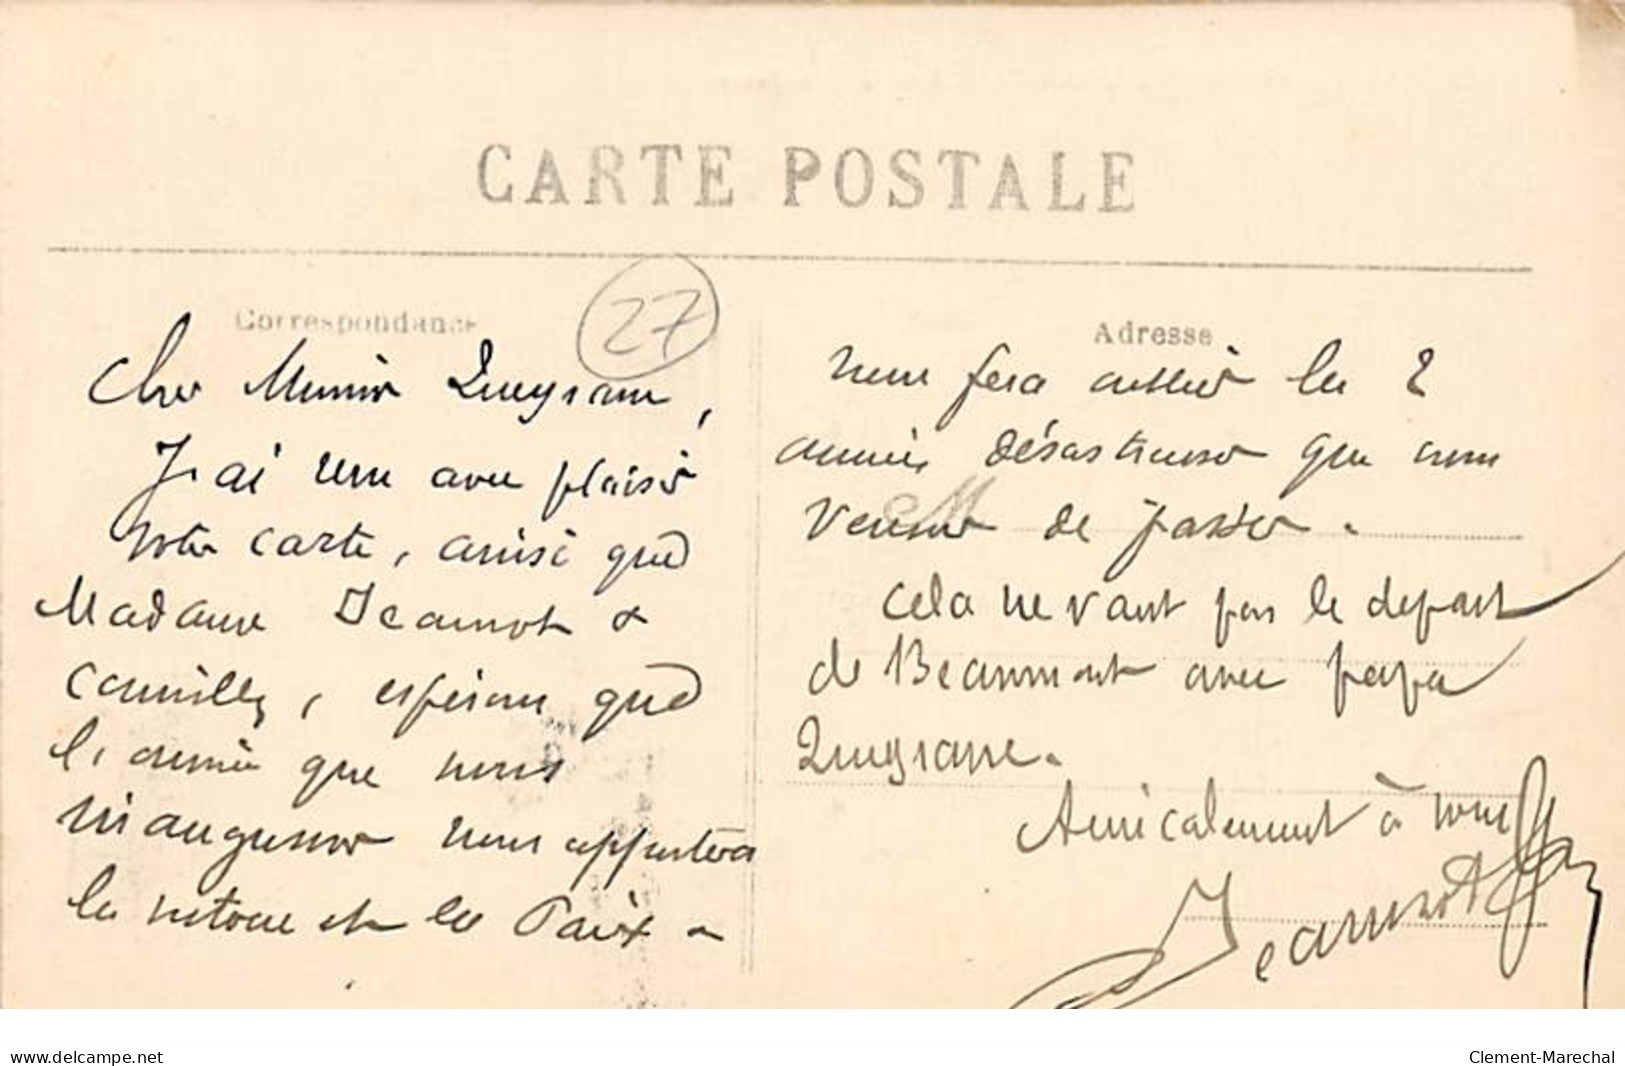 CARTE POSTALE
Correspondance
27
Cher Monsieur
J'ai reçu avec plaisir
votre carte, ainsi que
Madame Jeannot &
Camille, espérons que
l'année que nous
inaugurons nous apportera
la victoire et la Paix
Adresse
nous fera oublier les 2
années désastreuses que nous
venons de passer.
Cela ne vaut pas le départ
de Beaumont avec papa
Amicalement à vous
Jeannot
delcampe.net
Clement-Marechal